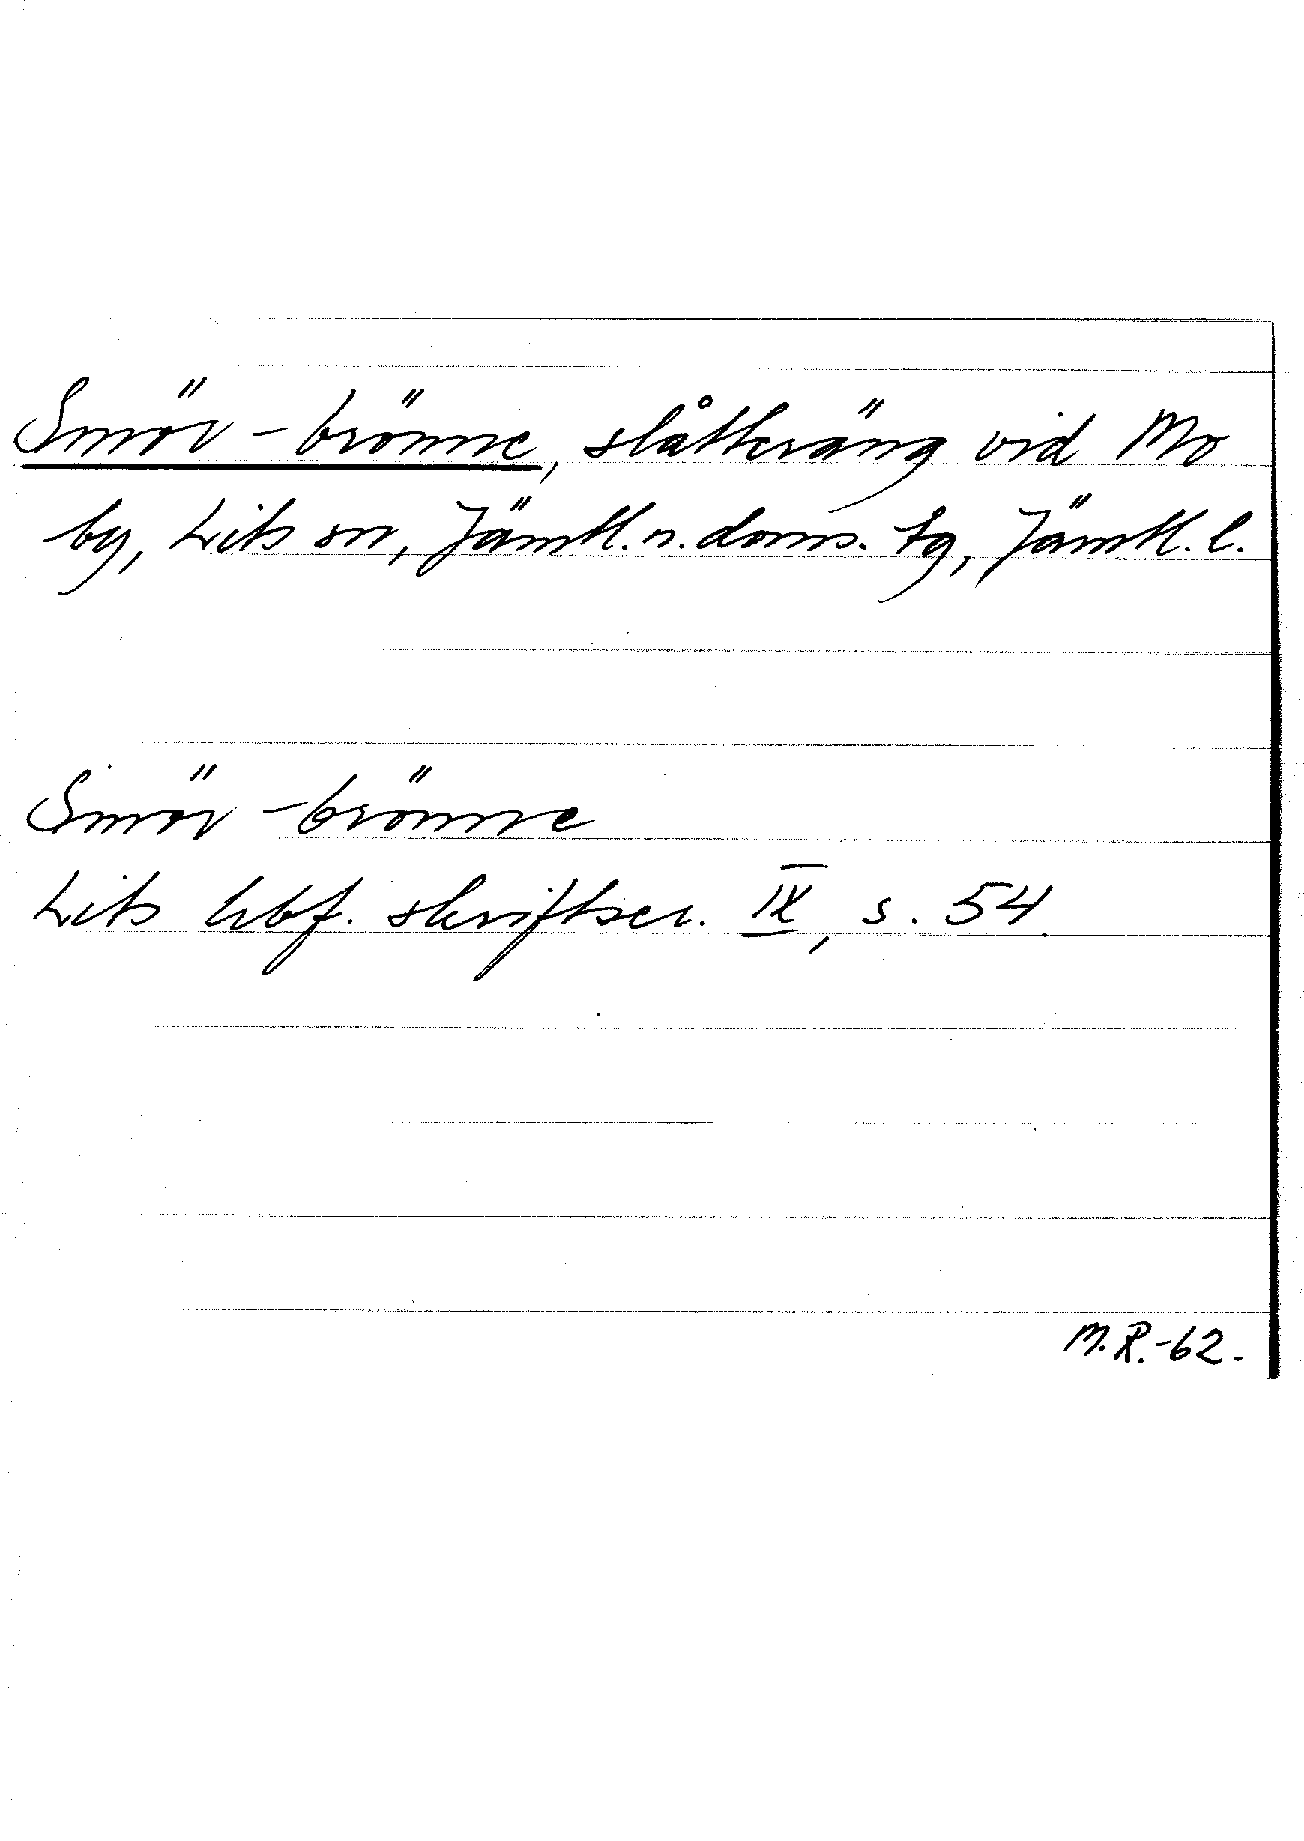 Smör-brönne, slåtteräng vid Mo
by, Lits sn, Jämtl. n. doms. tg, Jämtl. l.
Smör-brönne
Lits hbf. skriftser. IX, s. 54.
M.R.-62.